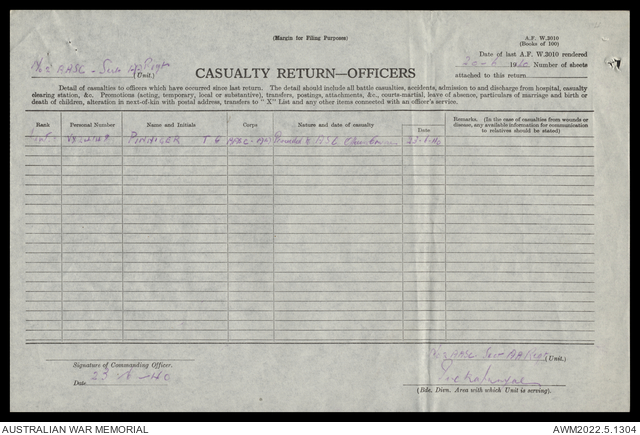 (Margin for Filing Purposes)
A.F. W.3010
(Books of 100)
Date of last A.F. W.3010 rendered
20-6 1940 Number of sheets
attached to this return
AASC - (Unit.)
CASUALTY RETURN—OFFICERS
Detail of casualties to officers which have occurred since last return. The detail should include all battle casualties, accidents, admission to and discharge from hospital, casualty
clearing station, &c. Promotions (acting, temporary, local or substantive), transfers, postings, attachments, &c., courts-martial, leave of absence, particulars of marriage and birth or
death of children, alteration in next-of-kin with postal address, transfers to "X" List and any other items connected with an officer's service.
Rank Personal Number Name and Initials Corps Nature and date of casualty Date Remarks. (In the case of casualties from wounds or
disease, any available information for communication
to relatives should be stated)
PINNIGER T G AASC
AASC (Unit.)
Signature of Commanding Officer.
Puckapunyal
Date 23-6-40
(Bde. Divn. Area with which Unit is serving).
AUSTRALIAN WAR MEMORIAL
AWM2022.5.1304